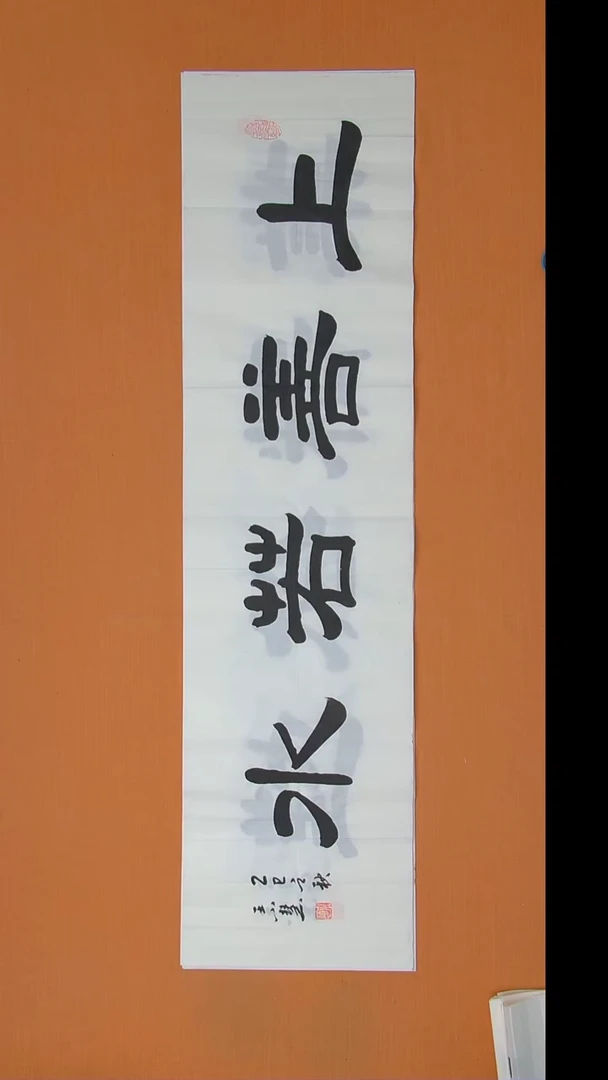 上善若水
乙巳之秋